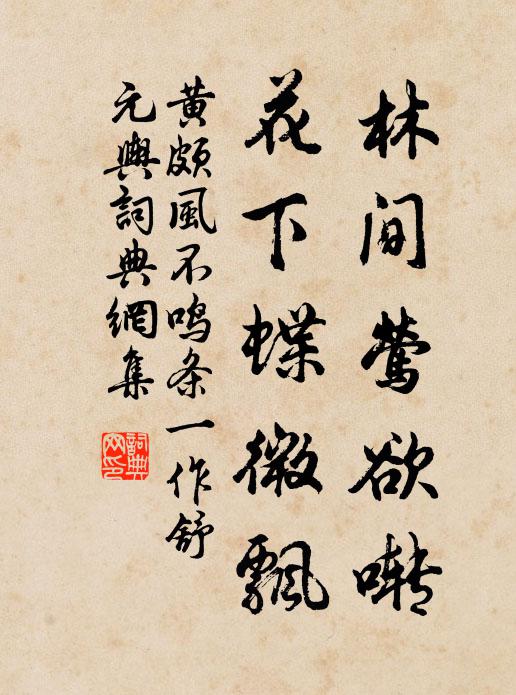 林间莺欲啭
花下蝶微飘
黄颇风不鸣条一作舒
元舆词典網集
詞典
网印